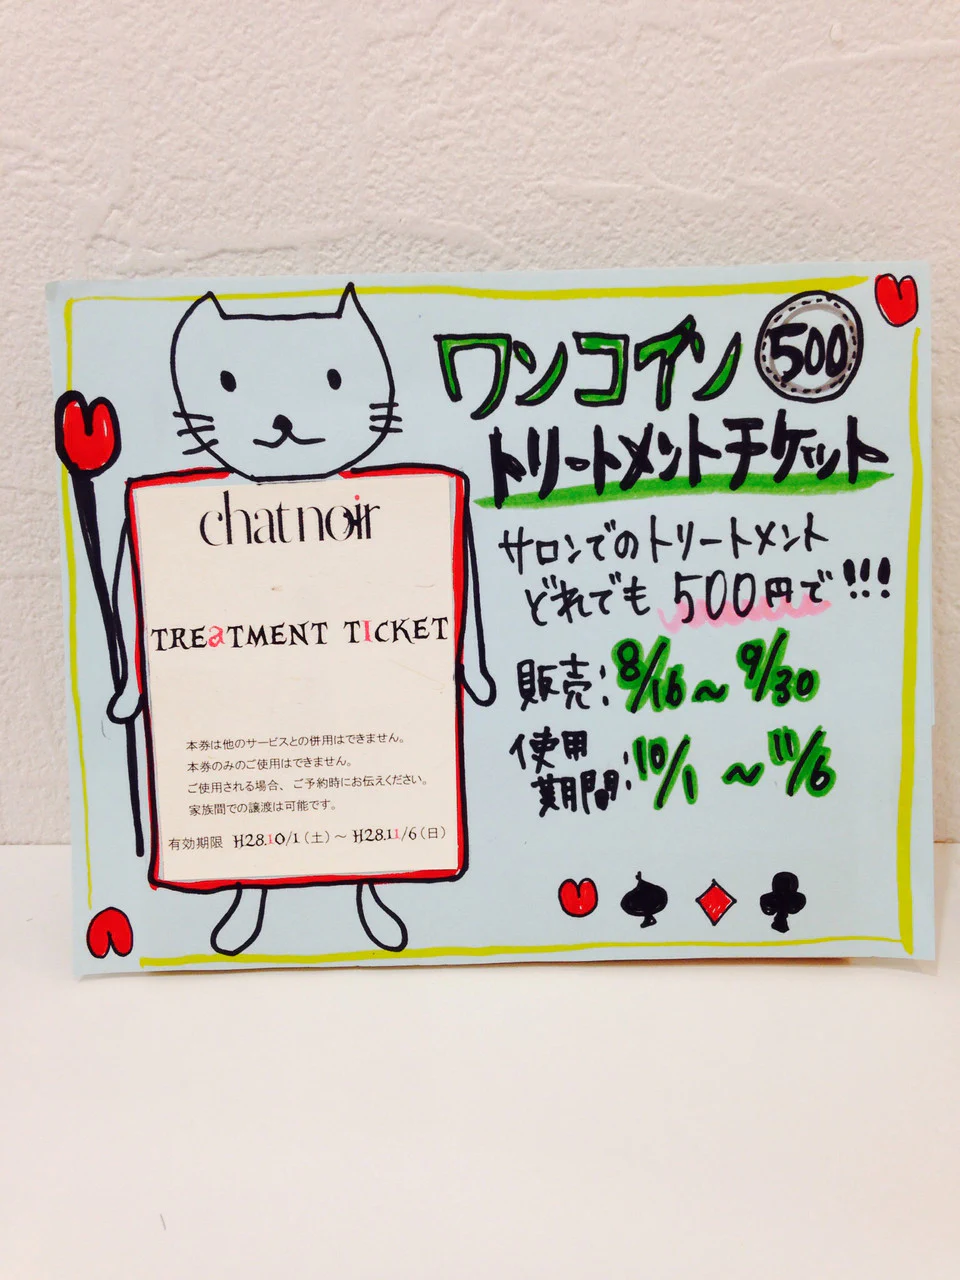 chat noir
TREaTMENT TICKET
本券は他のサービスとの併用はできません。
本券のみのご使用はできません。
ご使用される場合、ご予約時にお伝えください。
家族間での譲渡は可能です。
有効期限 H28.10/1(土)～H28.11/6(日)
ワンコイン 500
トリートメントチケット
サロンでのトリートメント
どれでも 500円で!!!
販売:8/16～9/30
使用
期間:10/1～11/6